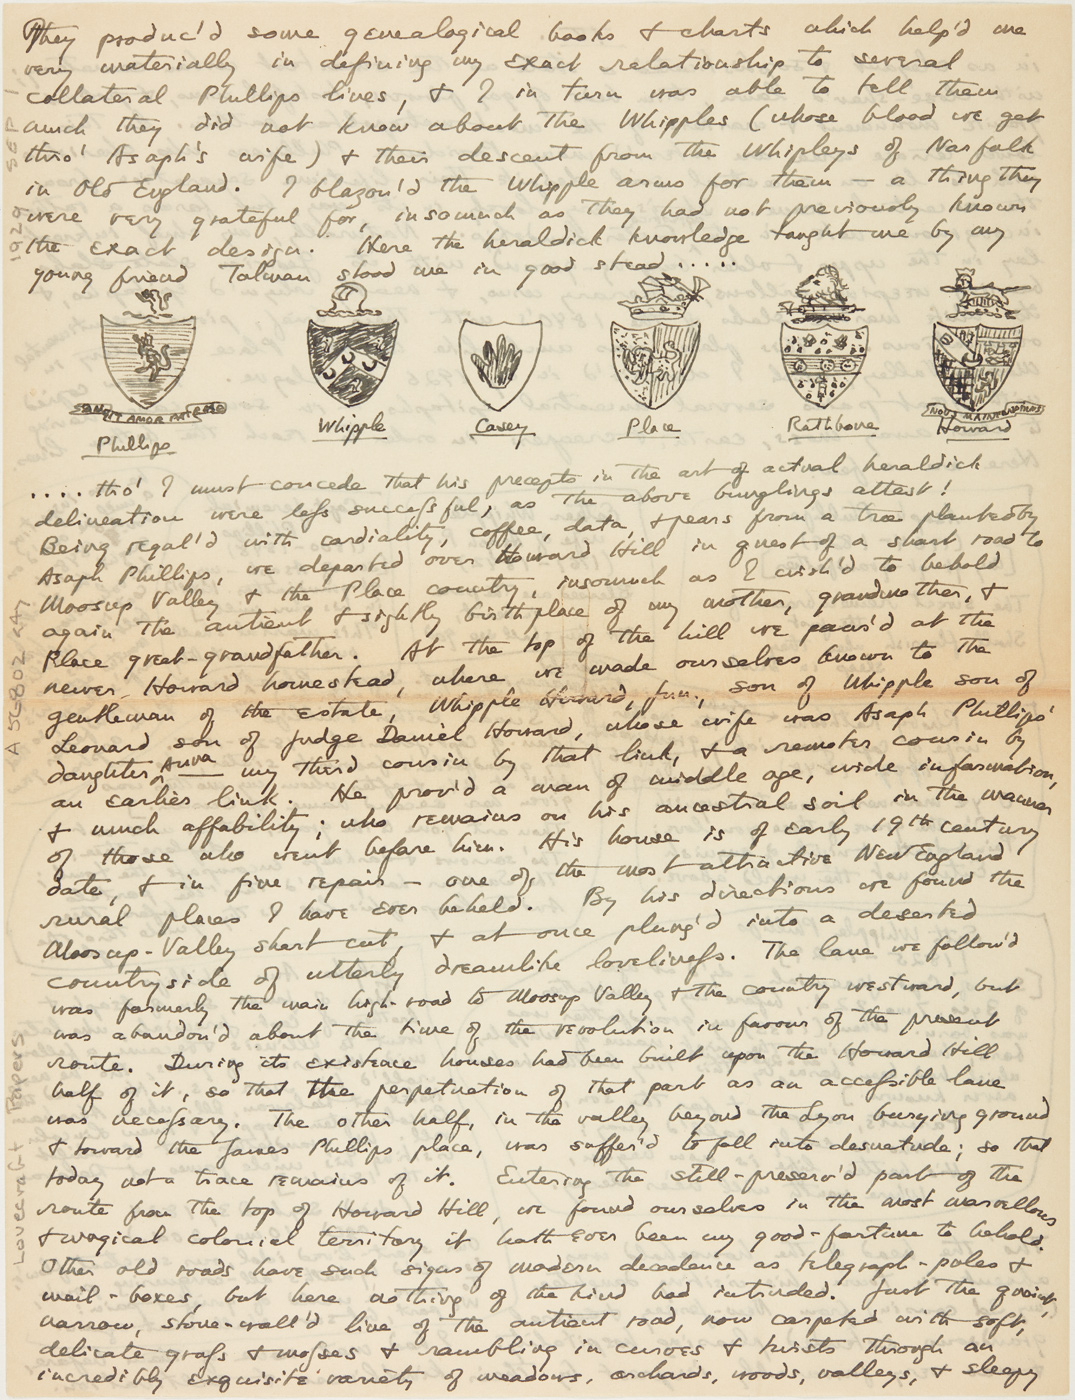 They produc'd some genealogical books & charts which help'd me
very materially in defining my exact relationship to several
collateral Phillips lines, & I in turn was able to tell them
much they did not know about the Whipples (whose blood we get
thro' Asaph's wife) & their descent from the Whipleys of Norfolk
in Old England. I blazon'd the Whipple arms for them — a thing they
were very grateful for, insomuch as they had not previously known
the exact design. Here the heraldick knowledge taught me by my
young friend Talman stood me in good stead.....
Phillips
Whipple
Casey
Place
Rathbone
Howard
.... tho' I must concede that his precepts in the art of actual heraldick
delineation were leſs succeſsful, as the above bunglings attest!
Being regal'd with cordiality, coffee, data, & pears from a tree planted by
Asaph Phillips, we departed over Howard Hill in quest of a short road to
Moosup Valley & the Place country, insomuch as I wish'd to behold
again the antient & sightly birthplace of my mother, grandmother, &
Place great-grandfather. At the top of the hill we paus'd at the
newer Howard homestead, where we made ourselves known to the
gentleman of the estate, Whipple Howard, jun., son of Whipple son of
Leonard son of Judge Daniel Howard, whose wife was Asaph Phillips'
daughter Anna my third cousin by that link, & a remoter cousin by
an earlier link. He prov'd a man of middle age, wide information,
& much affability; who remains on his ancestral soil in the manner
of those who went before him. His house is of early 19th century
date, & in fine repair — one of the most attractive New England
rural places I have ever beheld. By his directions we found the
Moosup-Valley short cut, & at once plung'd into a deserted
countryside of utterly dreamlike lovelineſs. The lane we follow'd
was formerly the main high-road to Moosup Valley & the country westward, but
was abandon'd about the time of the revolution in favour of the present
route. During its existence houses had been built upon the Howard Hill
half of it, so that the perpetuation of that part as an acceſsible lane
was neceſsary. The other half, in the valley beyond the Lyon burying ground
& toward the James Phillips place, was suffer'd to fall into desuetude; so that
today not a trace remains of it. Entering the still-preserv'd part of the
route from the top of Howard Hill, we found ourselves in the most marvellous
& magical colonial territory it hath ever been my good-fortune to behold.
Other old roads have such signs of modern decadence as telegraph-poles &
mail-boxes, but here nothing of the kind had intruded. Just the quaint,
narrow, stone-wall'd line of the antient road, now carpeted with soft,
delicate graſs & moſses & rambling in curves & twists through an
incredibly exquisite variety of meadows, orchards, woods, valleys, & sleepy
Lovecraft Papers